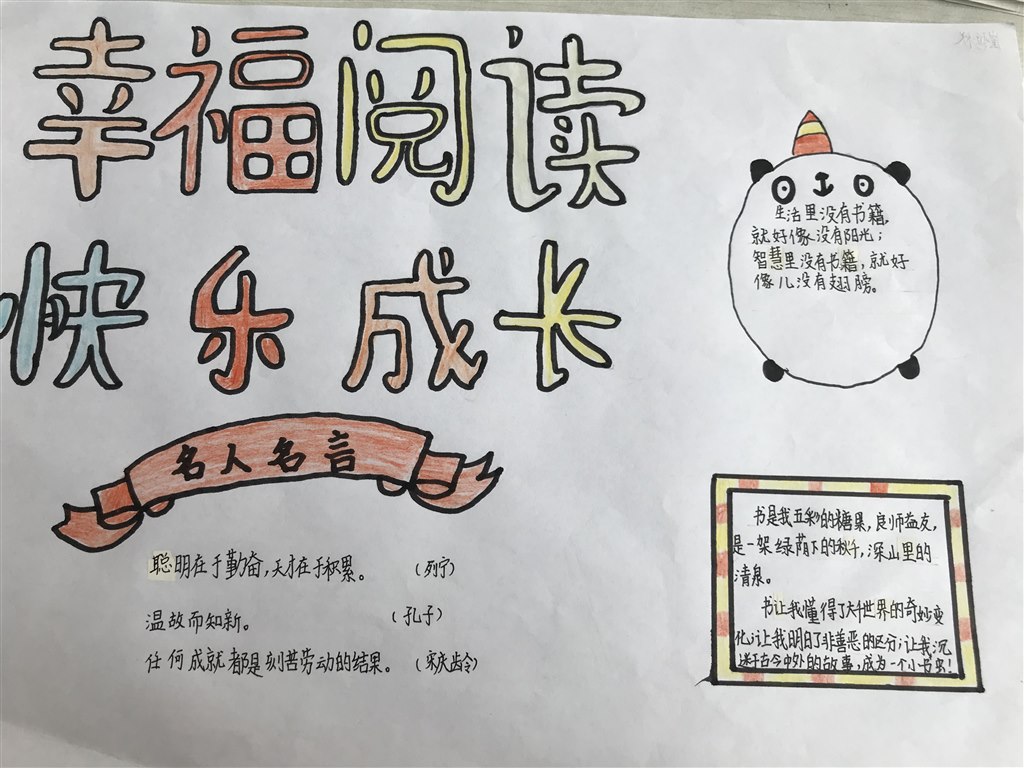 幸福阅读
快乐成长
生活里没有书籍，
就好像没有阳光；
智慧里没有书籍，就好
像儿没有翅膀。
名人名言
聪明在于勤奋，天才在于积累。 （列宁）
温故而知新。 （孔子）
任何成就都是刻苦劳动的结果。 （宋庆龄）
书是我五彩的糖果，良师益友，
是一架绿荫下的秋千，深山里的
清泉。
书让我懂得了大千世界的奇妙变
化；让我明白了非善恶的区分；让我沉
迷于古今中外的故事，成为一个小书虫！